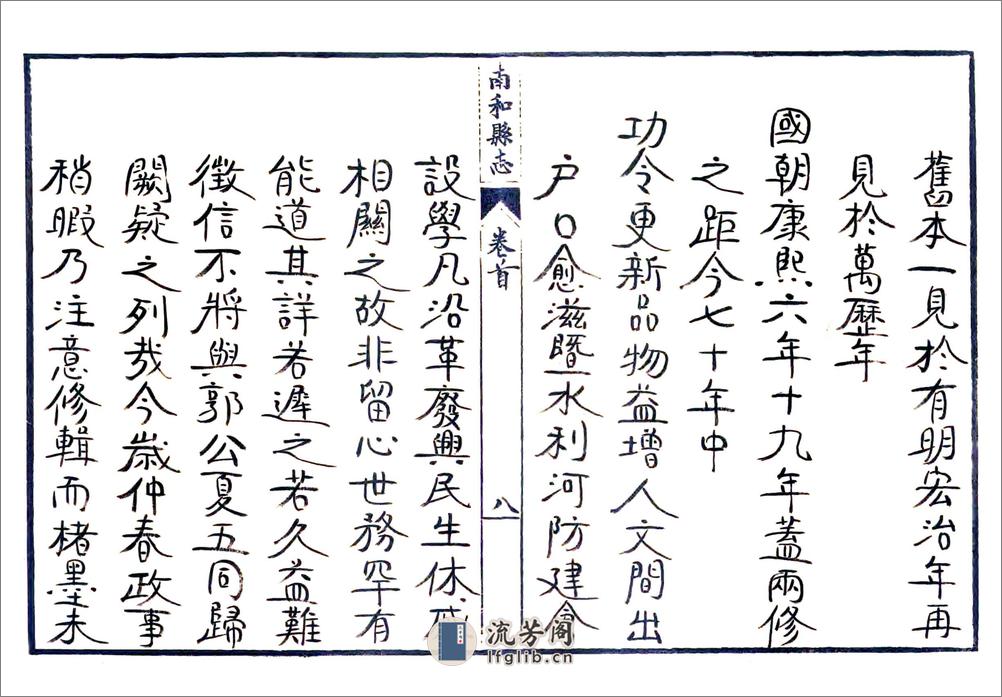 舊本一見於有明宏治年再
見於萬歷年
國朝康熙六年十九年蓋兩修
之距今七十年中
功令更新品物益增人文間出
户口愈滋暨水利河防建倉
南和縣志
卷首
八
設學凡沿革廢興民生休戚
相關之故非留心世務罕有
能道其詳若遲之若久益難
徵信不將與郭公夏五同歸
闕疑之列哉今歲仲春政事
稍暇乃注意修輯而楮墨未
流芳阁
lfglib.cn